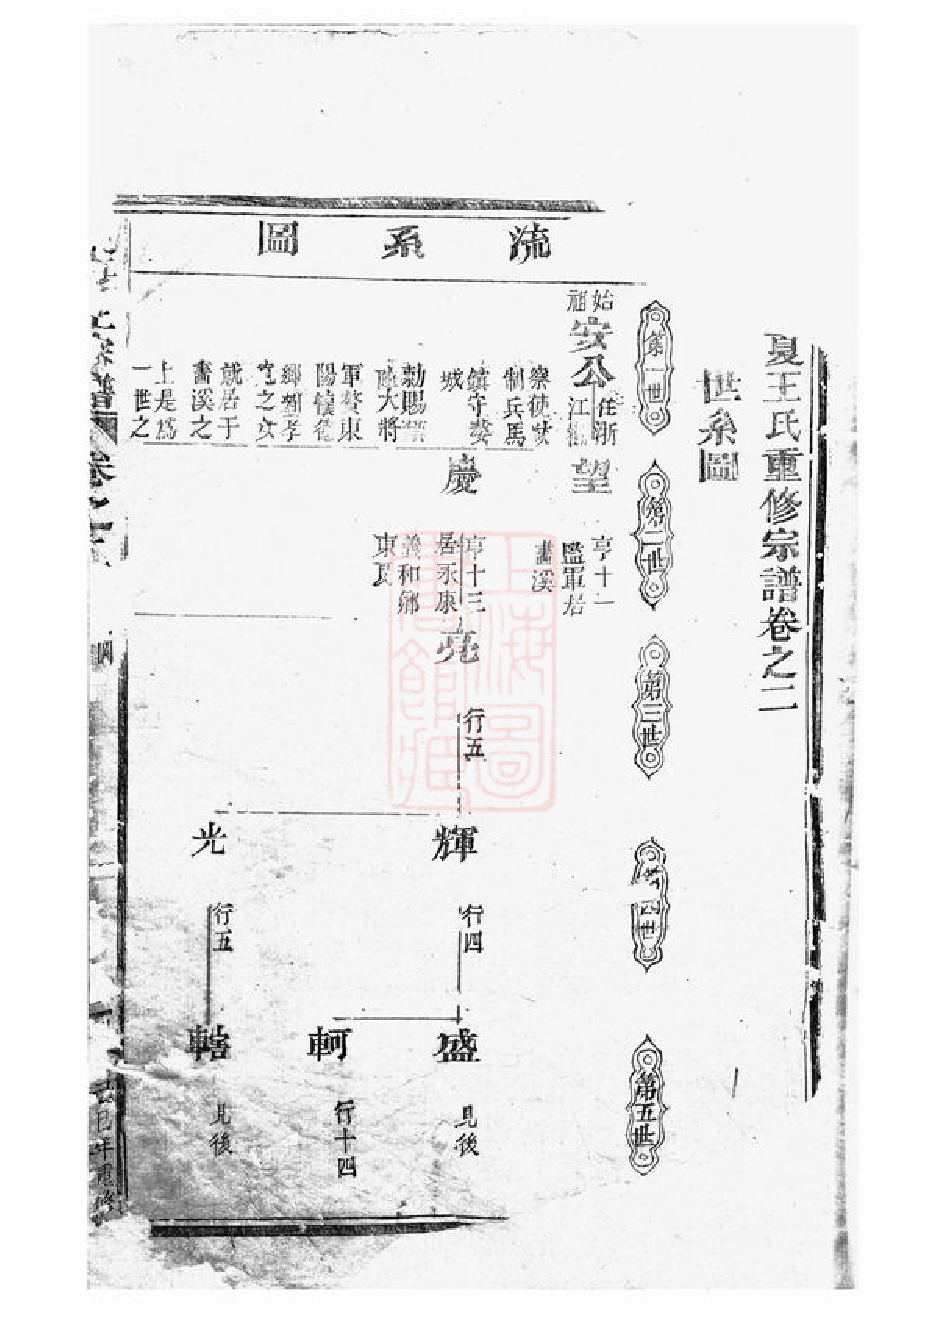 夏王氏重修宗譜卷之二
世系圖
流系圖
第一世
第二世
第三世
第四世
第五世
始祖
安公
任浙江
察使
制兵馬
鎮守婺
城
勅賜
大將
軍贅東
陽懷德
鄉
之女
就居于
畫溪之
上是爲
一世之
望
亨十二
監軍居
畫溪
慶
亨十三
居永康
義和鄉
東夏
堯
行五
輝
行四
光
行五
盛
見後
軻
行十四
轄
見後
宗譜
卷之二
己巳年重修
上海圖書館藏